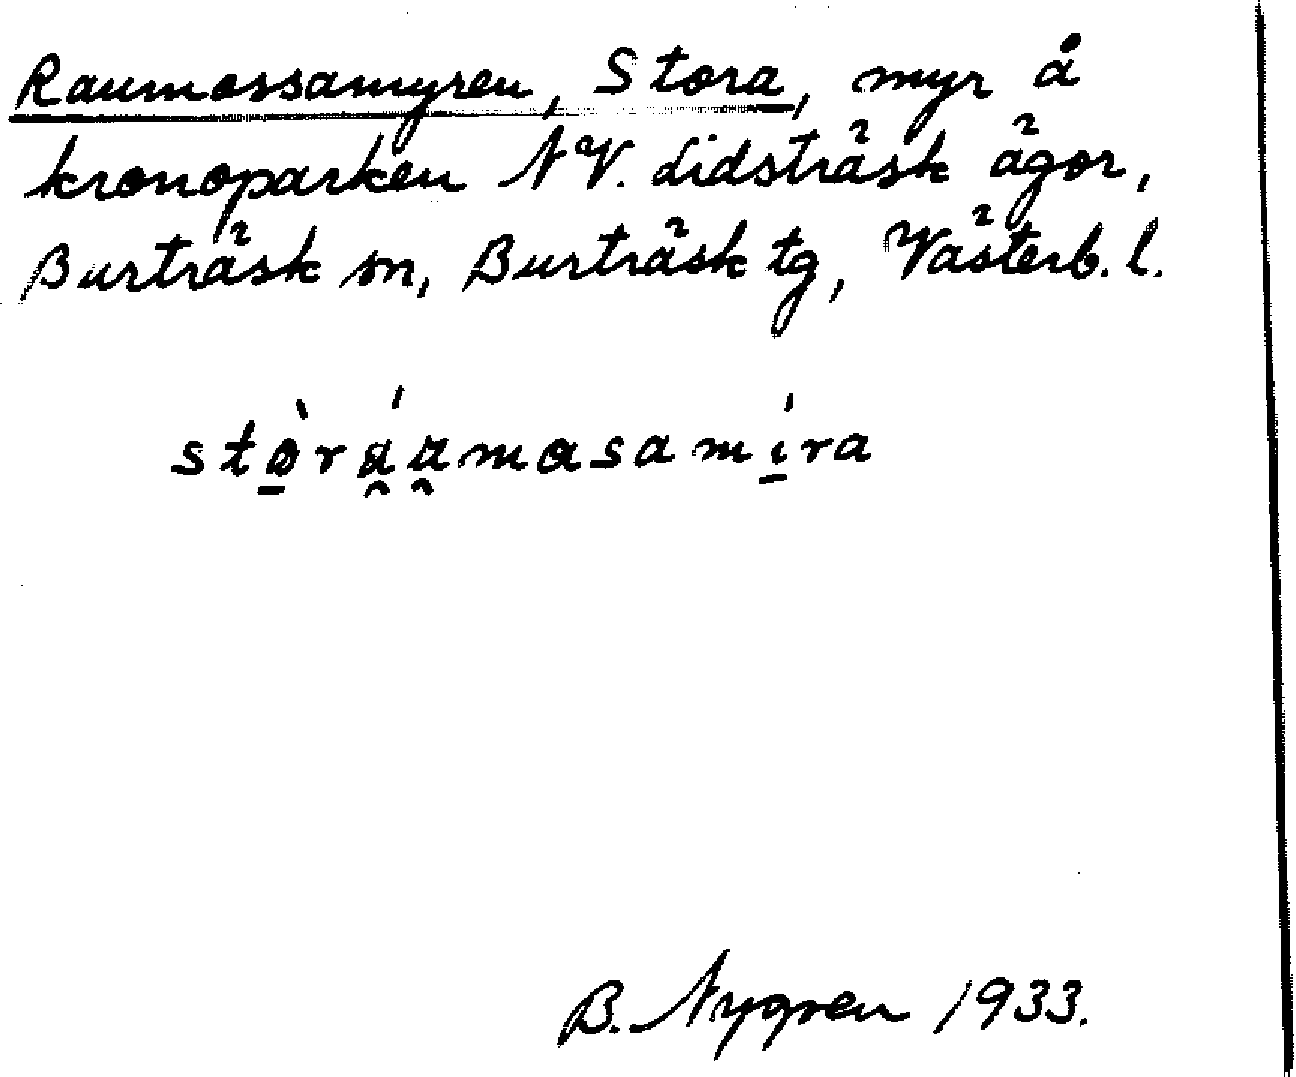 Raumossamyren, Stora, myr å
kronoparken NV. Lidsträsk ägor,
Burträsk sn, Burträsk tg, Västerb. l.
stò̱ráu̯masamí̱ra
B. Nygren 1933.